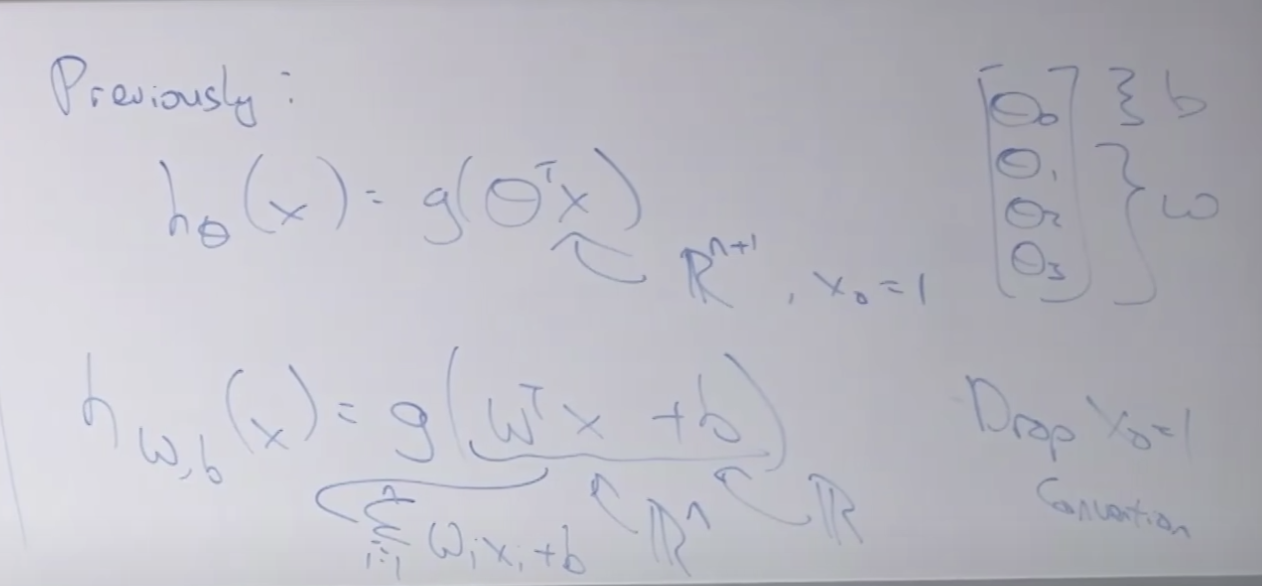 Previously:
h_θ(x) = g(θ^T x)
R^{n+1}, x_0 = 1
[θ_0 θ_1 θ_2 θ_3]
} b
} w
h_{w,b}(x) = g(w^T x + b)
Σ_{i=1}^n w_i x_i + b
R^n
R
Drop x_0=1
Convention